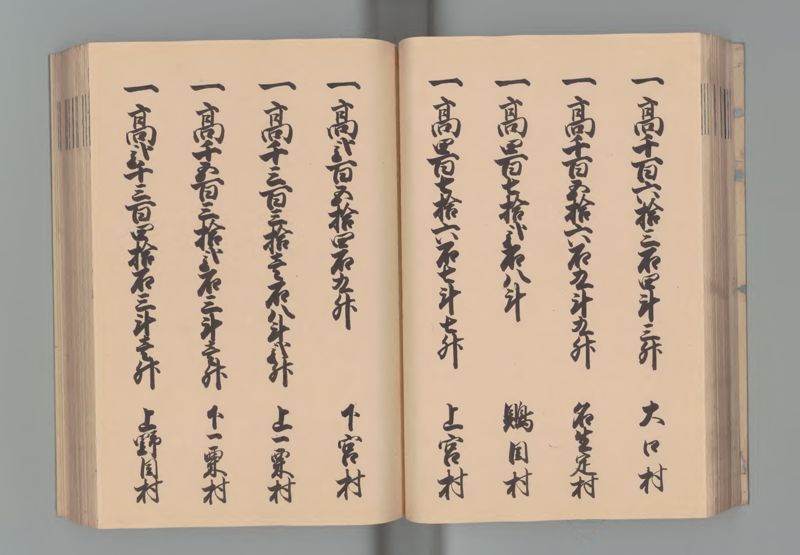 一高千百六拾三石四斗三升 大口村
一高千百五拾六石五斗九升 名生定村
一高四百七拾弐石八斗 鵙目村
一高四百七拾六石七斗七升 上宮村
一高弐百五拾四石九升 下宮村
一高千三百三拾壱石八斗弐升 上一栗村
一高千五百三拾弐石三斗 升 下一栗村
一高弐千三百四拾石三斗壱升 上野目村